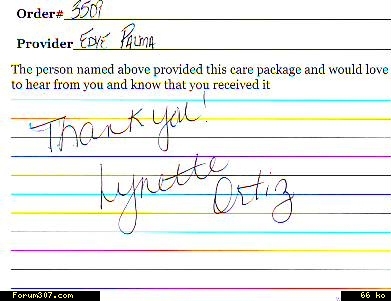 Order# 3509
Provider EDYE PALMA
The person named above provided this care package and would love
to hear from you and know that you received it
Thank you!
Lynette
Ortiz
Forum307.com 66 ko